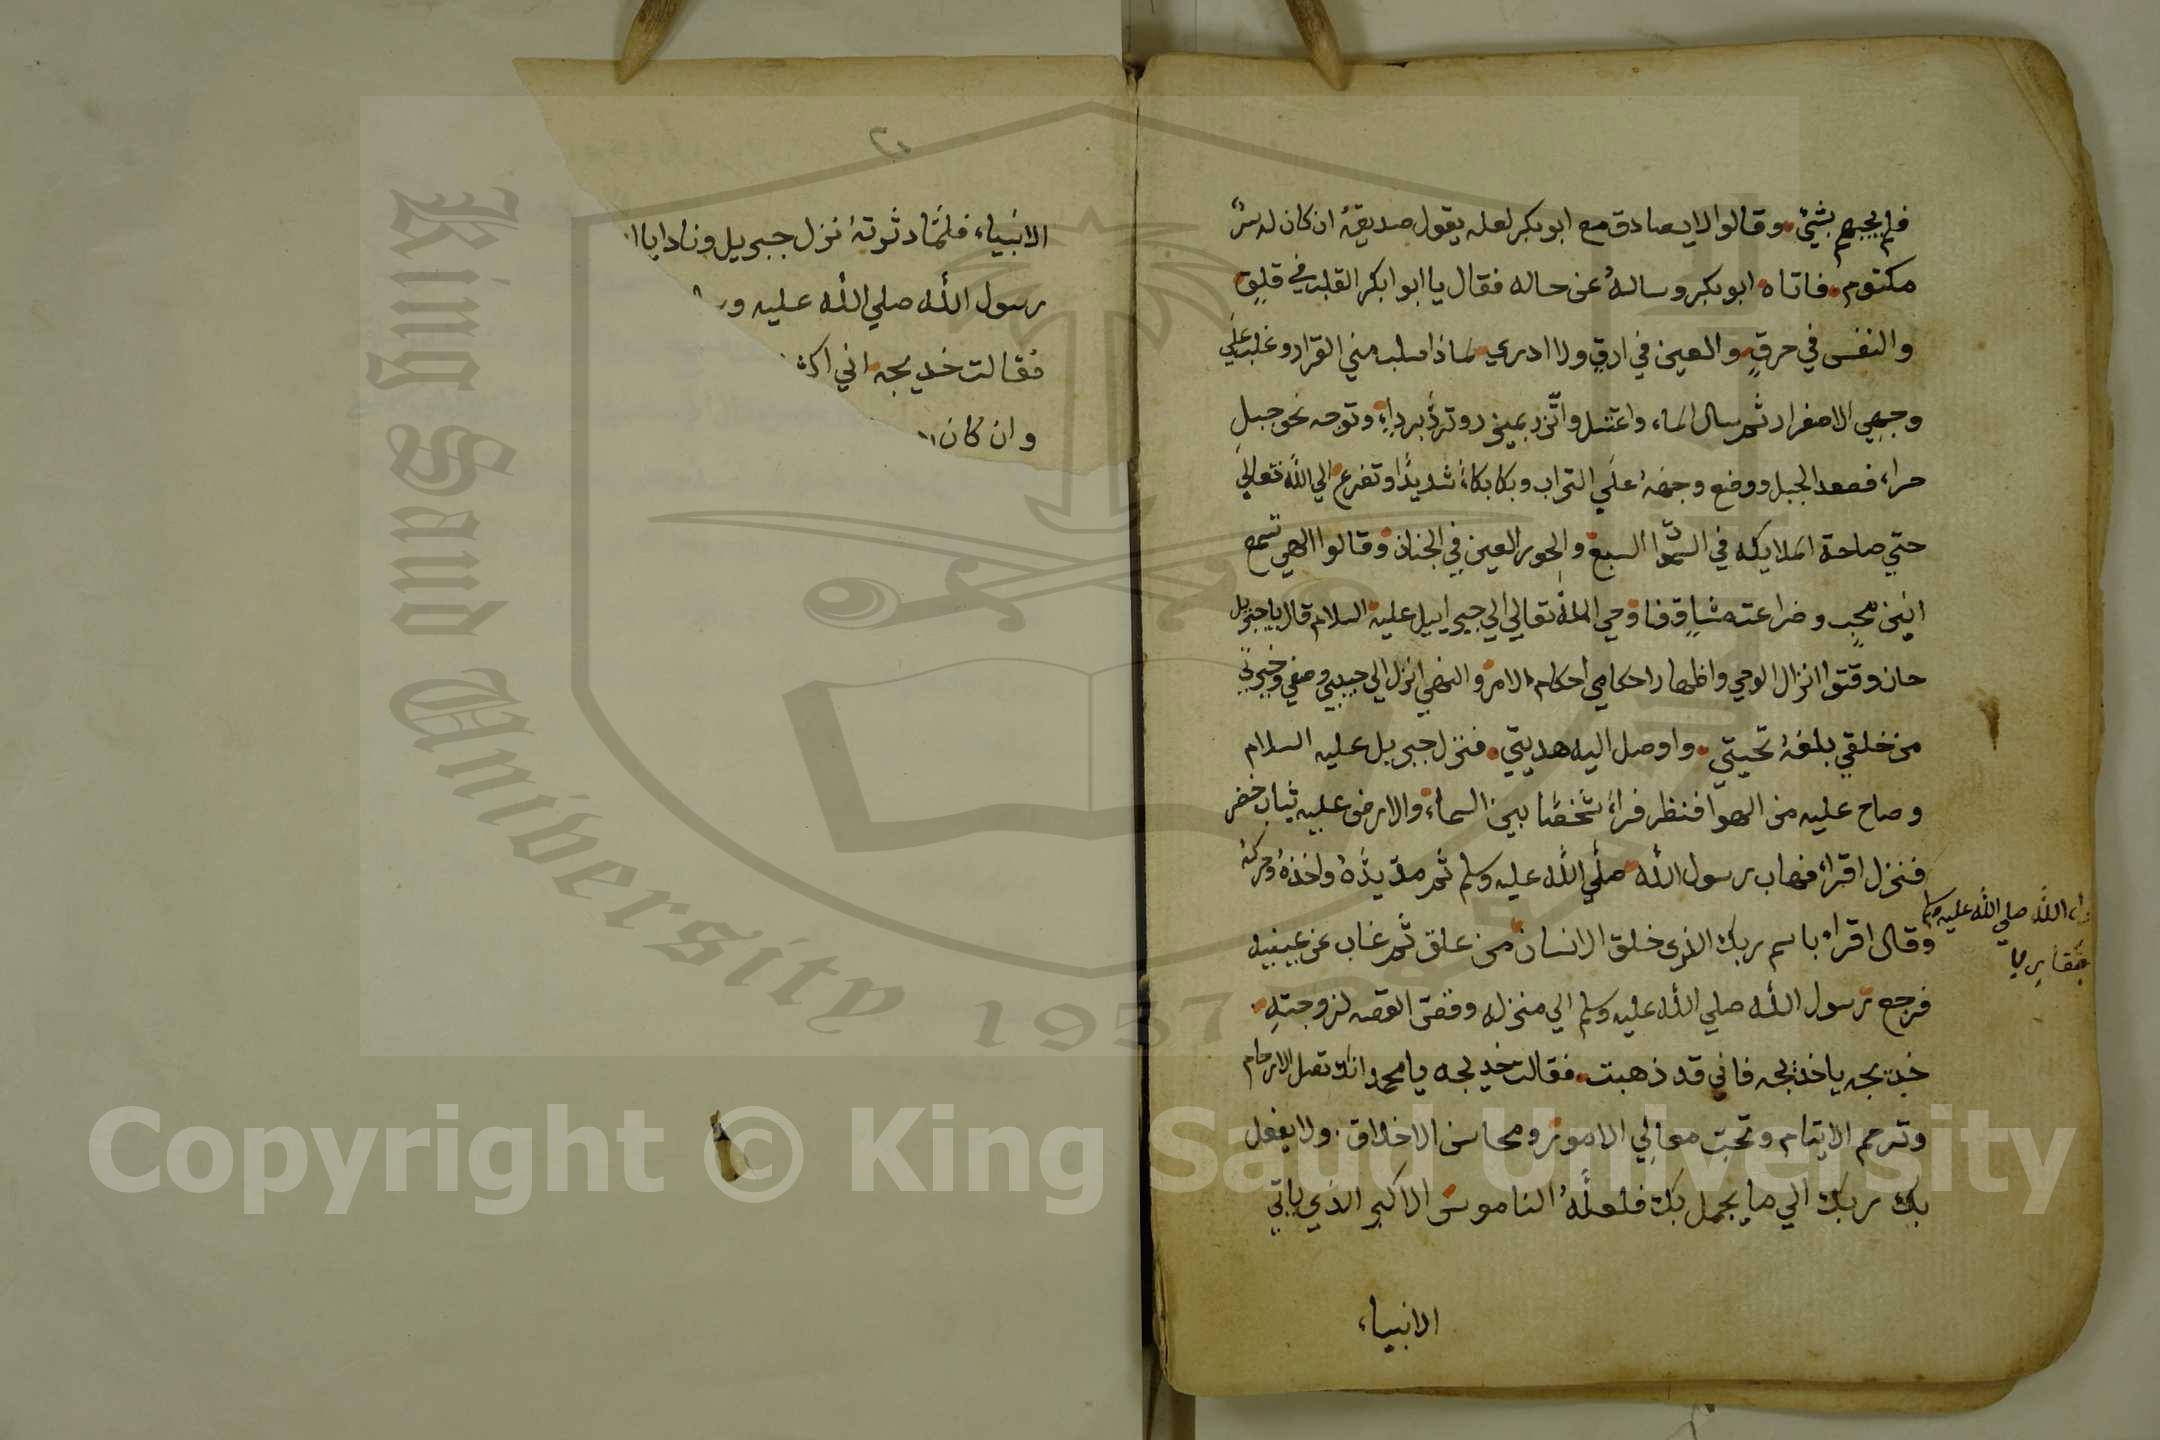 فلم يجبهم بشيئ وقالوا لا يصادق مع ابو بكر لعله يقول صديقه ان كان له سرّ
مكتوم فاتاه ابو بكر وساله عن حاله فقال يا ابو ابكر القلب في قلق
والنفس في حرق والعين في ارق ولا ادري لماذا سلب مني القرار وغلب علي
وجهي الاصفرار ثم سال الماء واغتسل واتّزر بميزر وتردّ برداءٍ وتوجه نحو جبل
حراء فصعد الجبل ووضع وجهه علي التراب وبكا بكاءً شديدًا وتضرع الي الله تعالي
حتي صاحة الملايكه في السموات السبع والحور العين في الجنان وقالوا الهي نسمع
انين محب وضراعته مشاق فاوحي الله تعالي الي جبراييل عليه السلام قال يا جبريل
حان وقتو انزال الوحي واظهار احكامي احكام الامر والنهي انزل الي حبيبي وصفي وخيرتي
من خلقي بلغه تحيتي واوصل اليه هديتي فنزل جبريل عليه السلام
وصاح عليه من الهوا فنظر فراء شخصًا بين السماء والارض عليه ثياب خضر
فنزل اقراء فهاب رسول الله صلي الله عليه وسلم ثم مدّ يده واخذه وحركه
الله صلي الله عليه وسلم
وقال اقراء باسم ربك الذي خلق الانسان من علق ثم غاب عن عينيه
فرجع رسول الله صلي الله عليه وسلم الي منزله وقصّ القصه لزوجته
خديجه يا خديجه فاني قد ذهبت فقالت خديجه يا محمد انك تصل الارحام
وترحم الايتام وتحب معالي الامور ومحاسن الاخلاق ولا يفعل
بك ربك الي ما يجمل بك فلعله الناموس الاكبر الذي ياتي
الانبياء
٢٠
الانبياء فلمّا دثرته نزل جبريل ونادا يا ا
رسول الله صلي الله عليه و
فقالت خديجه اني
وان كان
King Saud University
1957
Copyright © King Saud University